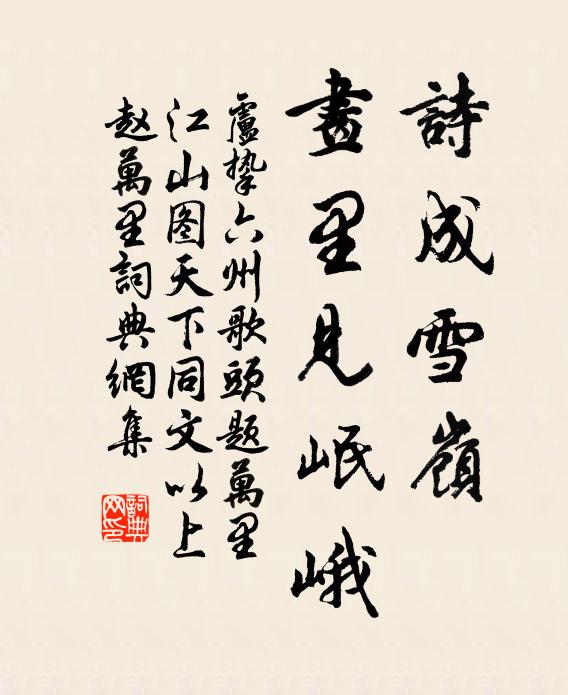 詩成雪嶺
畫里見岷峨
盧摯六州歌頭題萬里
江山图天下同文以上
赵萬里詞典網集
詞典网印